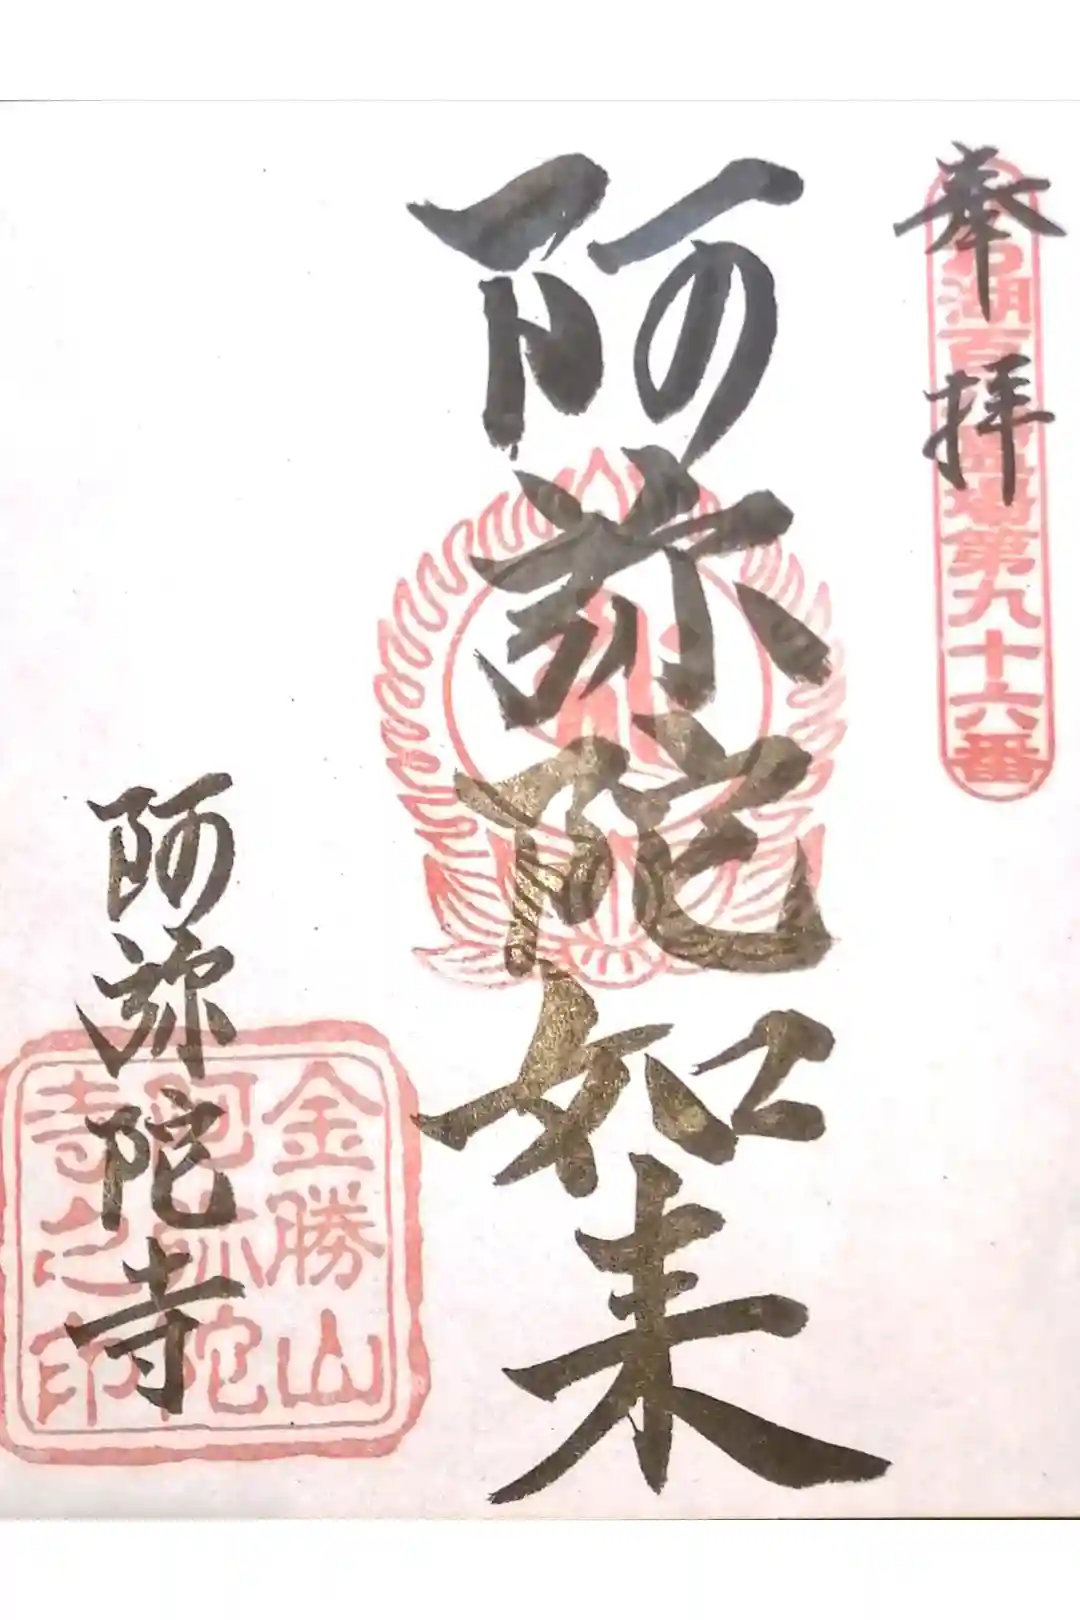 奉拝
湖百霊場第九十六番
阿弥陀如来
阿弥陀寺
金勝山
阿弥陀
寺之印